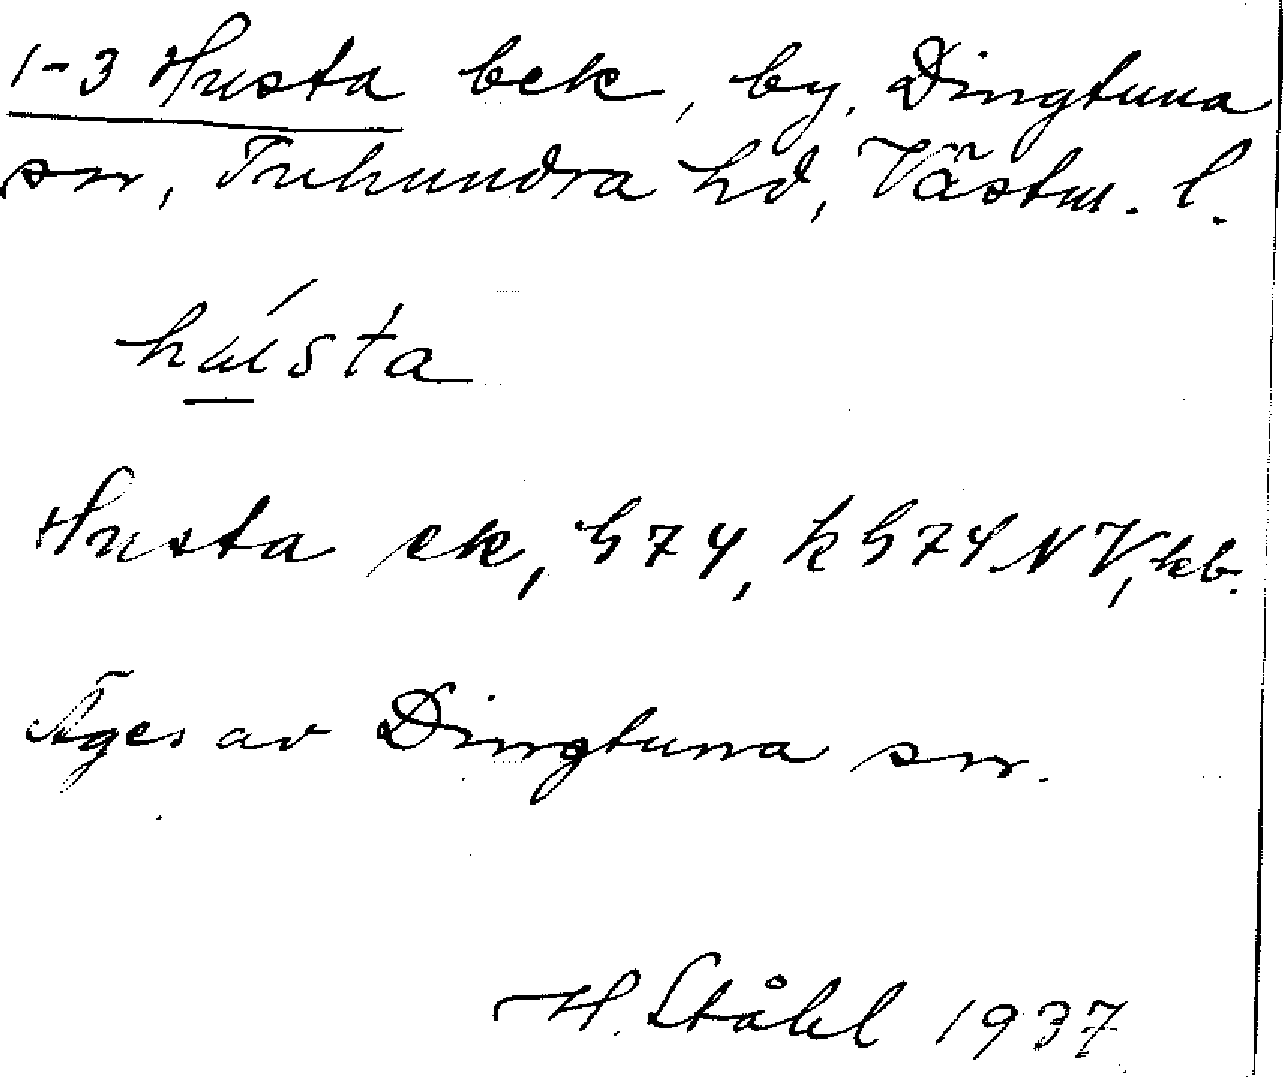 1-3 Husta bek, by, Dingtuna
sn, Tuhundra hd, Västm. l.
hústa
Husta ek, h74, kh74NV, kb.
Äges av Dingtuna sn.
H. Ståhl 1937